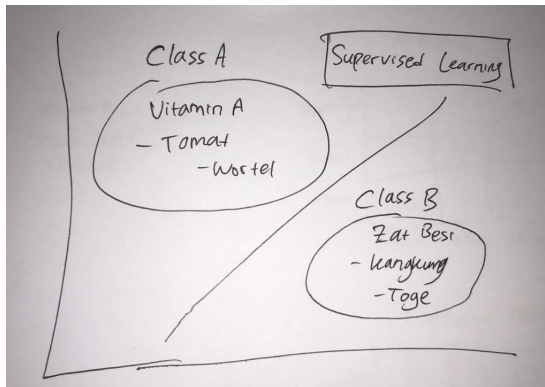 Class A
Supervised Learning
Vitamin A
- Tomat
- Wortel
Class B
Zat Besi
- Kangkung
- Toge